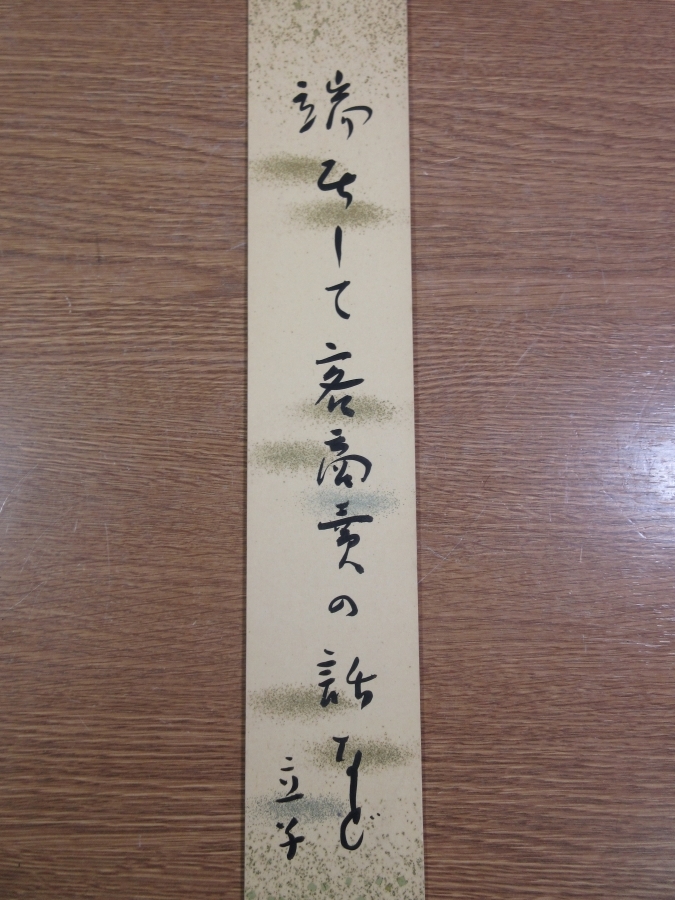 端居して客商売の話など
立子